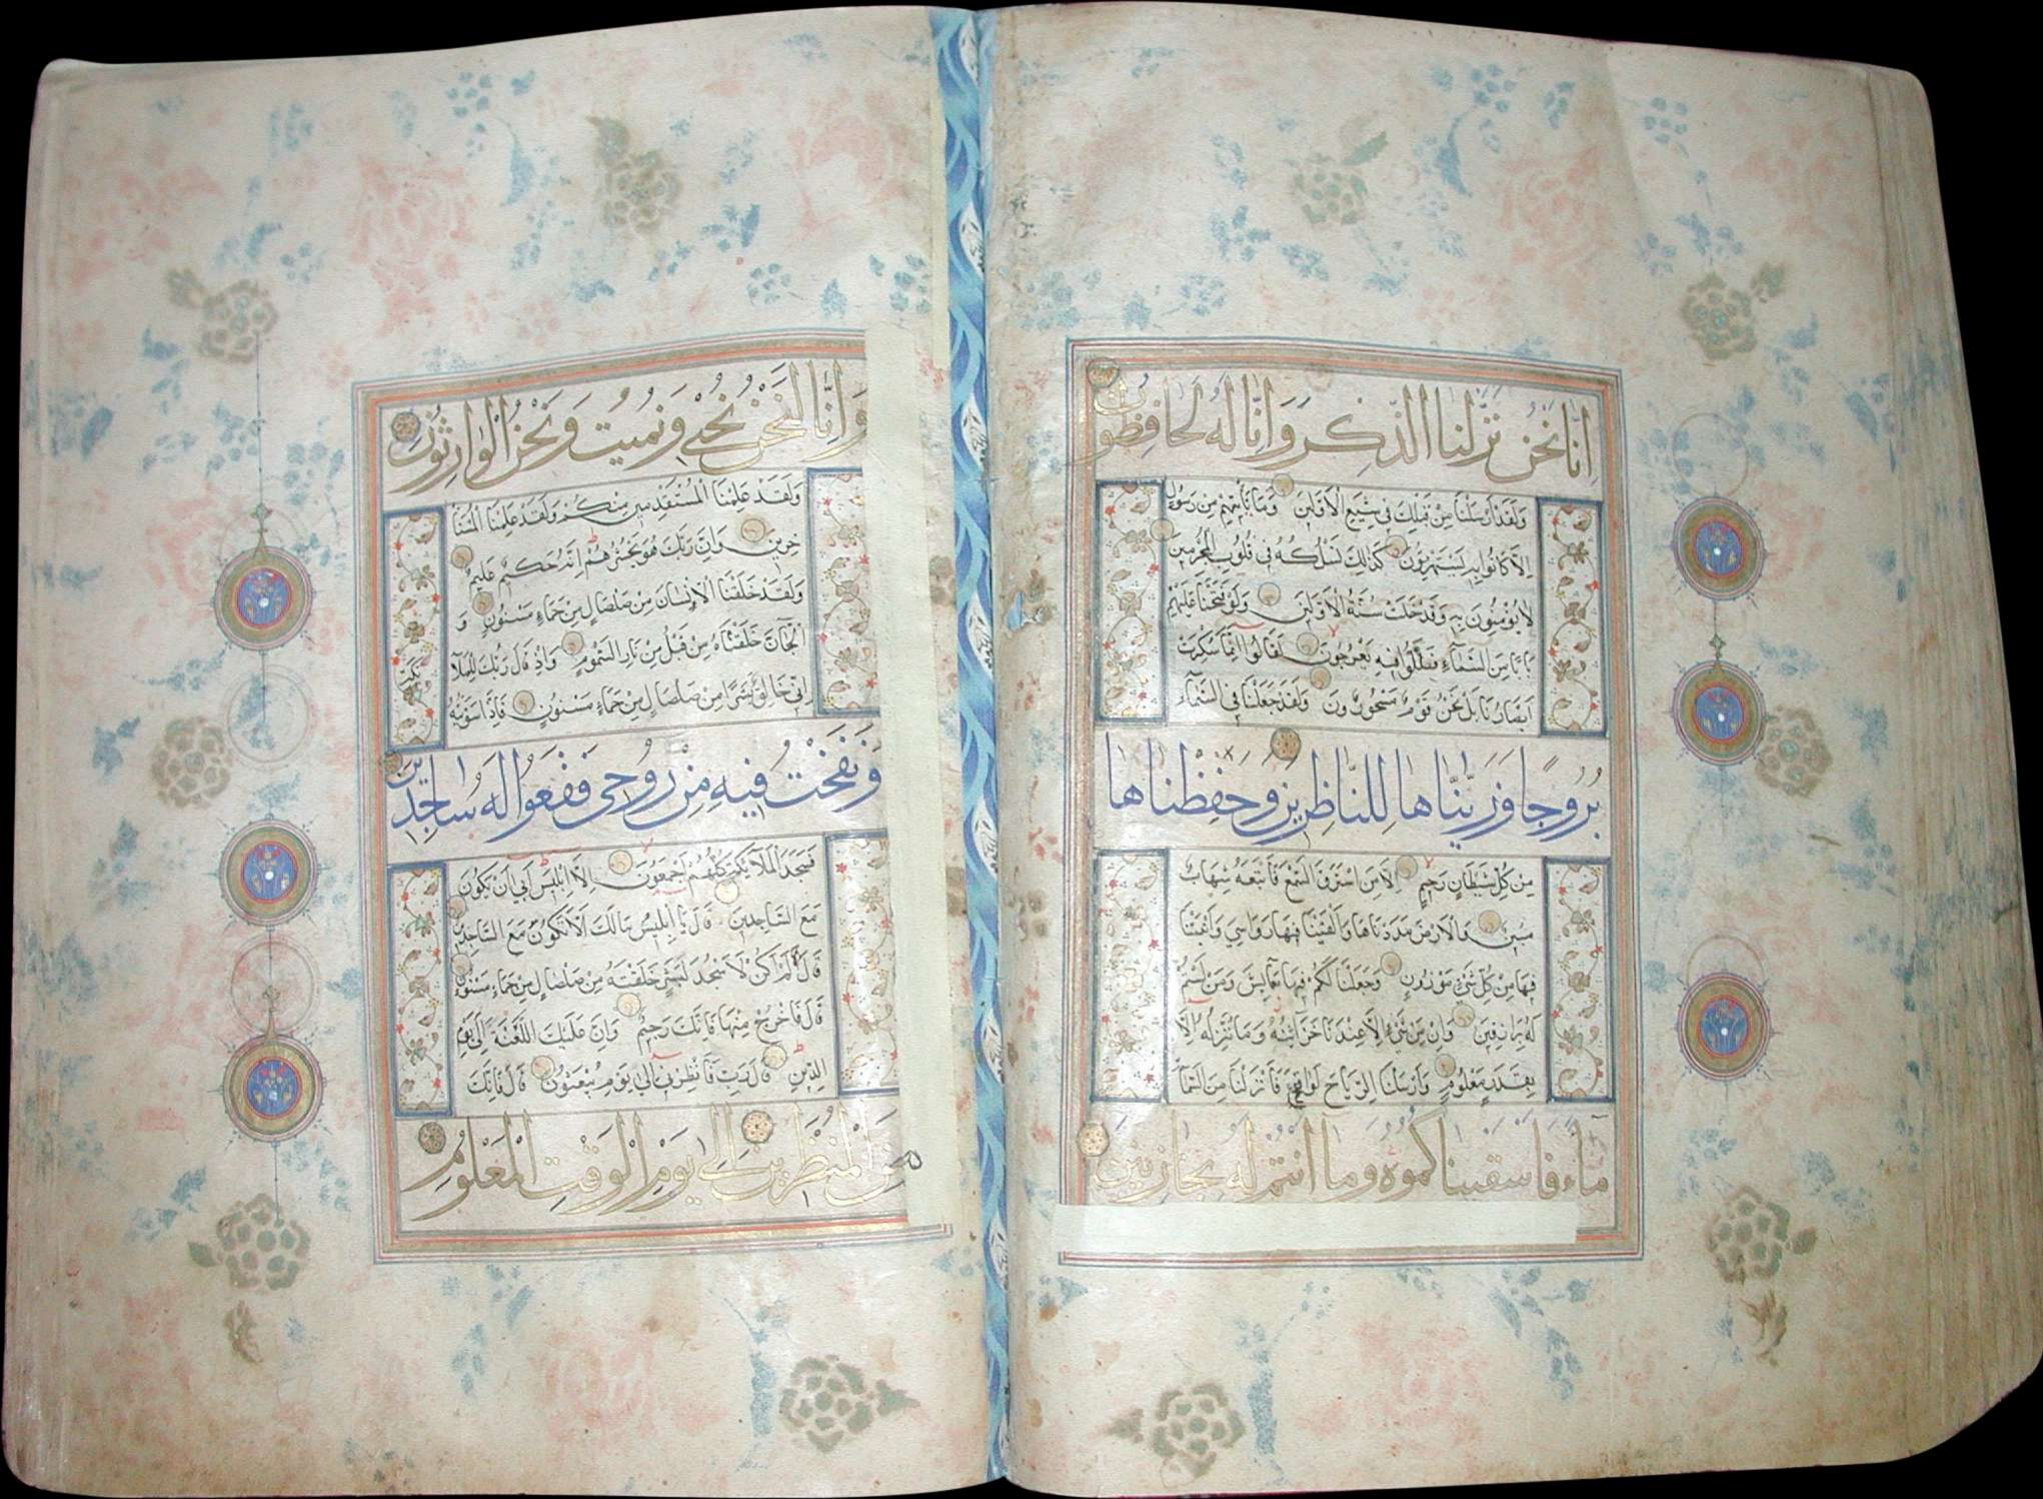 انا نحن نزلنا الذكر وانا له لحافظون
ولقد ارسلنا من قبلك في شيع الاولين وما ياتيهم من رسول
الا كانوا به يستهزؤن كذلك نسلكه في قلوب المجرمين
لا يؤمنون به وقد خلت سنة الاولين ولو فتحنا عليهم
بابا من السماء فظلوا فيه يعرجون لقالوا انما سكرت
ابصارنا بل نحن قوم مسحورون ولقد جعلنا في السماء
بروجا وزيناها للناظرين وحفظناها
من كل شيطان رجيم الا من استرق السمع فاتبعه شهاب
مبين والارض مددناها والقينا فيها رواسي وانبتنا
فيها من كل شيء موزون وجعلنا لكم فيها معايش ومن لستم
له برازقين وان من شيء الا عندنا خزآئنه وما ننزله الا
بقدر معلوم وارسلنا الرياح لواقح فانزلنا من السمآ
ماء فاسقيناكموه وما انتم له بخازنين
وانا لنحن نحيي ونميت ونحن الوارثون
ولقد علمنا المستقدمين منكم ولقد علمنا المستا
خرين وان ربك هو يحشرهم انه حكيم عليم
ولقد خلقنا الانسان من صلصال من حماء مسنون و
الجآن خلقناه من قبل من نار السموم واذ قال ربك للملآ
ئكة
اني خالق بشرا من صلصال من حماء مسنون فاذا سويته
ونفخت فيه من روحي فقعوا له ساجدين
فسجد الملآئكة كلهم اجمعون الا ابليس ابى ان يكون
مع الساجدين قال يا ابليس مالك الا تكون مع الساجدين
قال لم اكن لاسجد لبشر خلقته من صلصال من حماء مسنون
قال فاخرج منها فانك رجيم وان عليك اللعنة الى يوم
الدين قال رب فانظرني الى يوم يبعثون قال فانك
من المنظرين الى يوم الوقت المعلوم